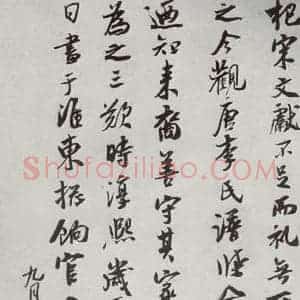 杞宋文獻不足而礼無
之今觀唐李氏譜牒
迺知来裔善守其家
為之三歎時淳熙歲
日書于淮東揔餉官
九月
Shufaziliao.com